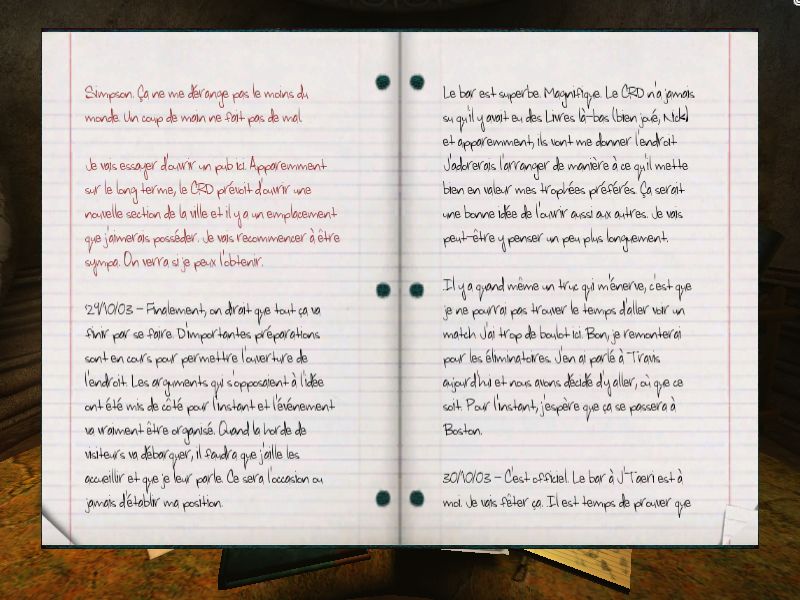 Simpson. Ça ne me dérange pas le moins du
monde. Un coup de main ne fait pas de mal.
Je vais essayer d'ouvrir un pub ici. Apparemment
sur le long terme, le CRD prévoit d'ouvrir une
nouvelle section de la ville et il y a un emplacement
que j'aimerais posséder. Je vais recommencer à être
sympa. On verra si je peux l'obtenir.
29/10/03 - Finalement, on dirait que tout ça va
finir par se faire. D'importantes préparations
sont en cours pour permettre l'ouverture de
l'endroit. Les arguments qui s'opposaient à l'idée
ont été mis de côté pour l'instant et l'événement
va vraiment être organisé. Quand la horde de
visiteurs va débarquer, il faudra que j'aille les
accueillir et que je leur parle. Ce sera l'occasion ou
jamais d'établir ma position.
Le bar est superbe. Magnifique. Le CRD n'a jamais
su qu'il y avait eu des Livres là-bas (bien joué, Nick)
et apparemment, ils vont me donner l'endroit
J'adorerais l'arranger de manière à ce qu'il mette
bien en valeur mes trophées préférés. Ça serait
une bonne idée de l'ouvrir aussi aux autres. Je vais
peut-être y penser un peu plus longuement.
Il y a quand même un truc qui m'énerve, c'est que
je ne pourrai pas trouver le temps d'aller voir un
match J'ai trop de boulot ici. Bon, je remonterai
pour les éliminatoires. J'en ai parlé à Travis
aujourd'hui et nous avons décidé d'y aller, où que ce
soit. Pour l'instant, j'espère que ça se passera à
Boston.
30/10/03 - C'est officiel. Le bar à J'Taeri est à
moi. Je vais fêter ça. Il est temps de prouver que